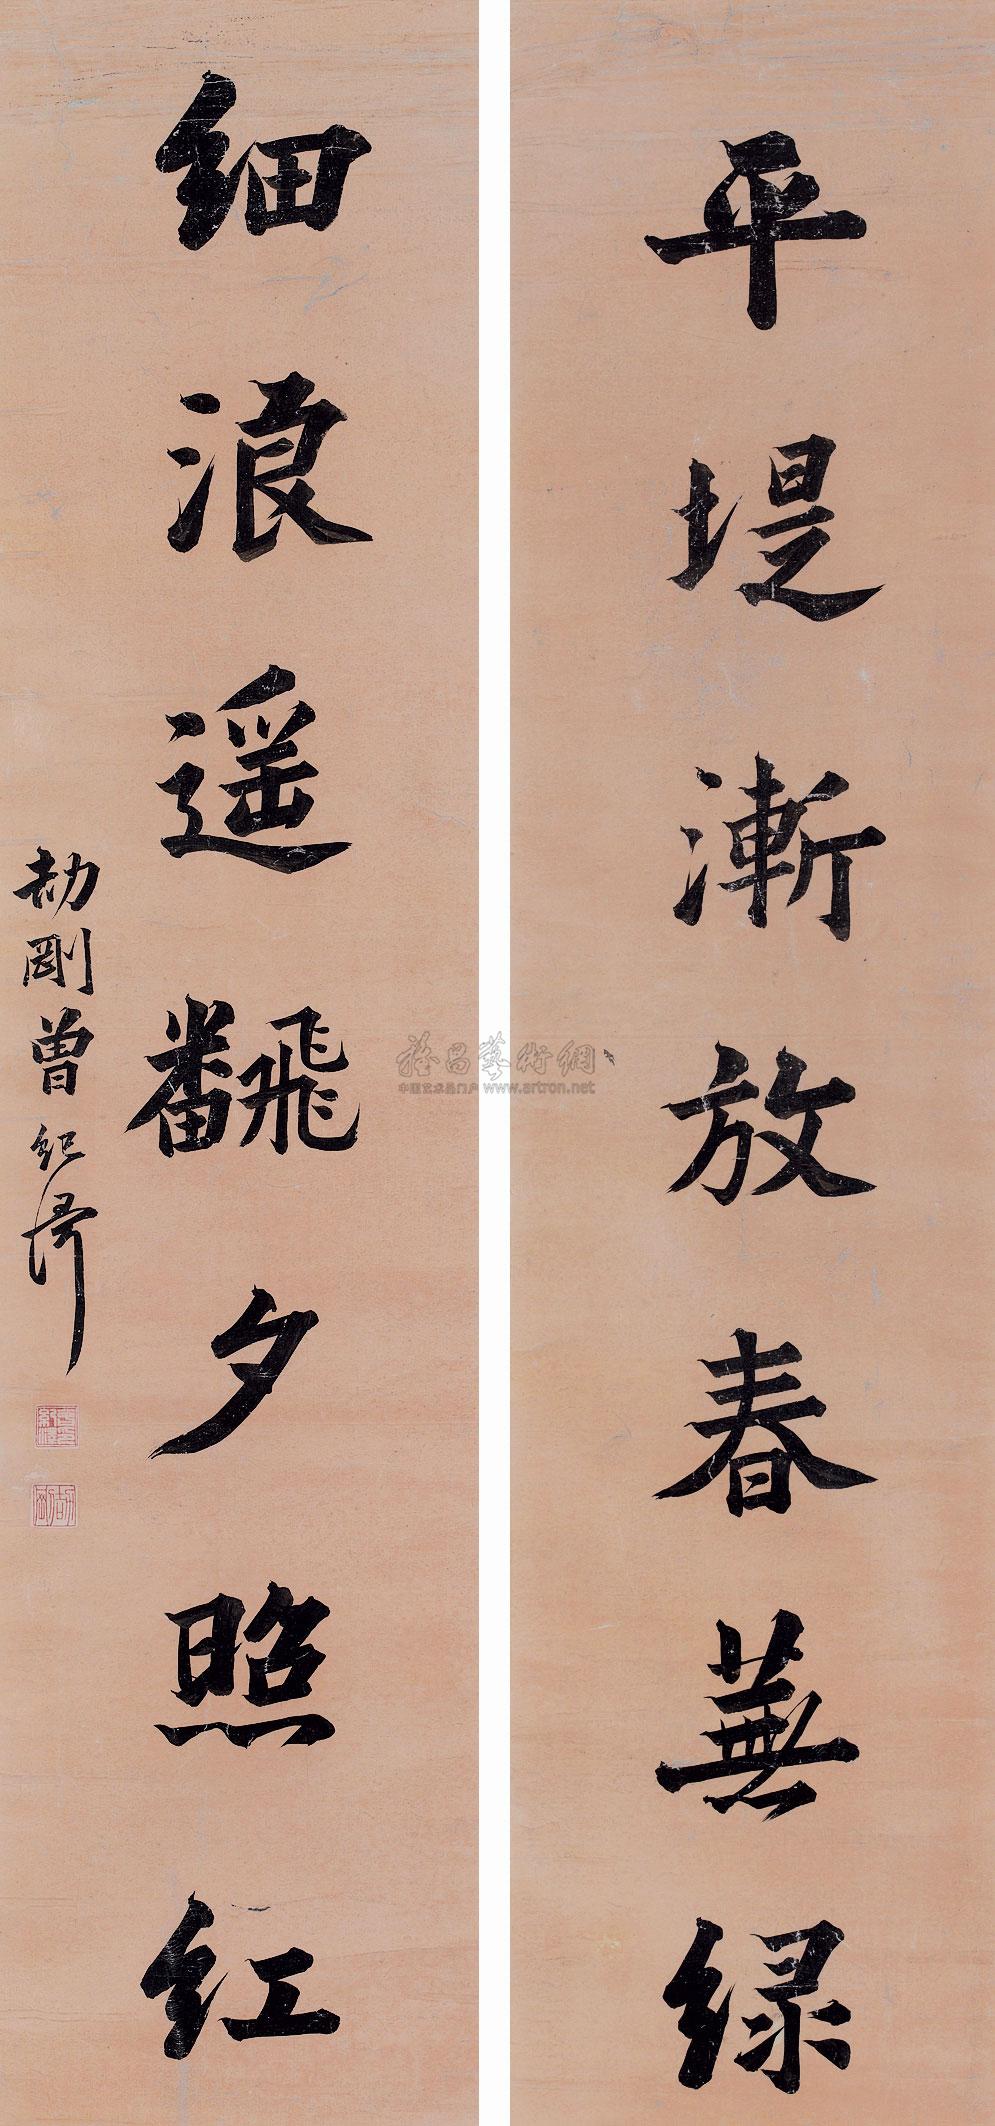 平堤漸放春蕪緑
細浪遥飜夕照紅
劼剛曾紀澤
雅昌藝術網
中国艺术品门户 www.artron.net